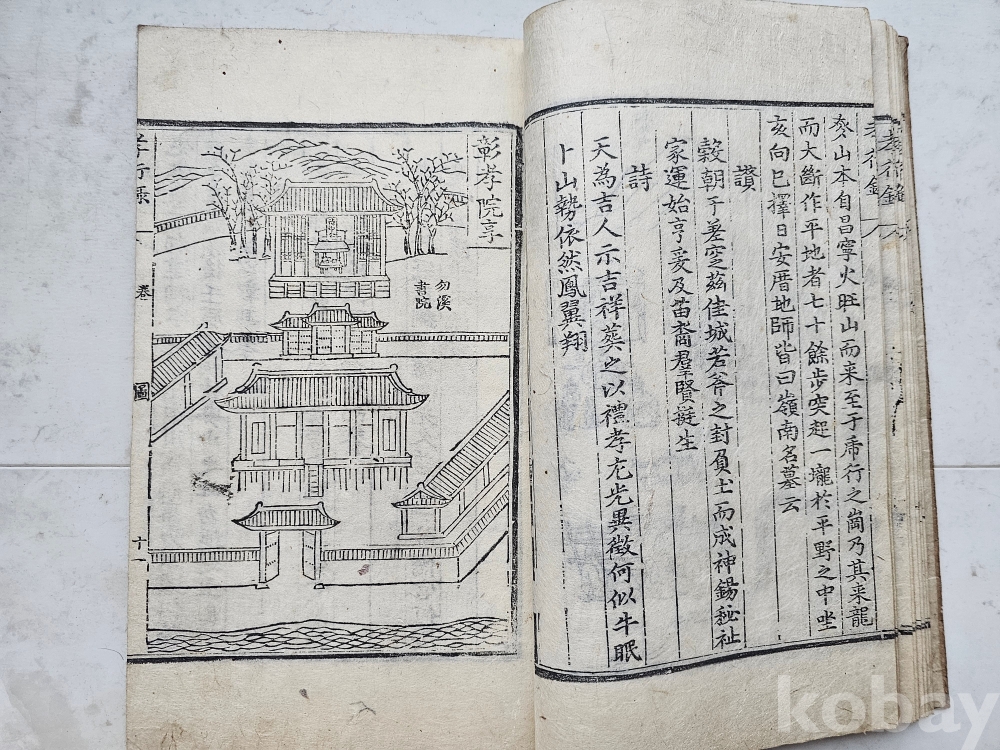 孝行錄
叅山本自昌寧火旺山而来至于帍行之崗乃其来龍
而大斷作平地者七十餘步突起一壠於平野之中坐
亥向巳擇日安厝地師皆曰嶺南名墓云
讚
穀朝于差空茲佳城若斧之封負土而成神錫秘祉
家運始亨爰及苗裔羣賢挺生
詩
天為吉人示吉祥葬之以禮孝尤光異徵何似牛眠
卜山勢依然鳳翼翔
彰孝院享
勿溪
書院
孝行錄
卷一
圖
十一
kobay